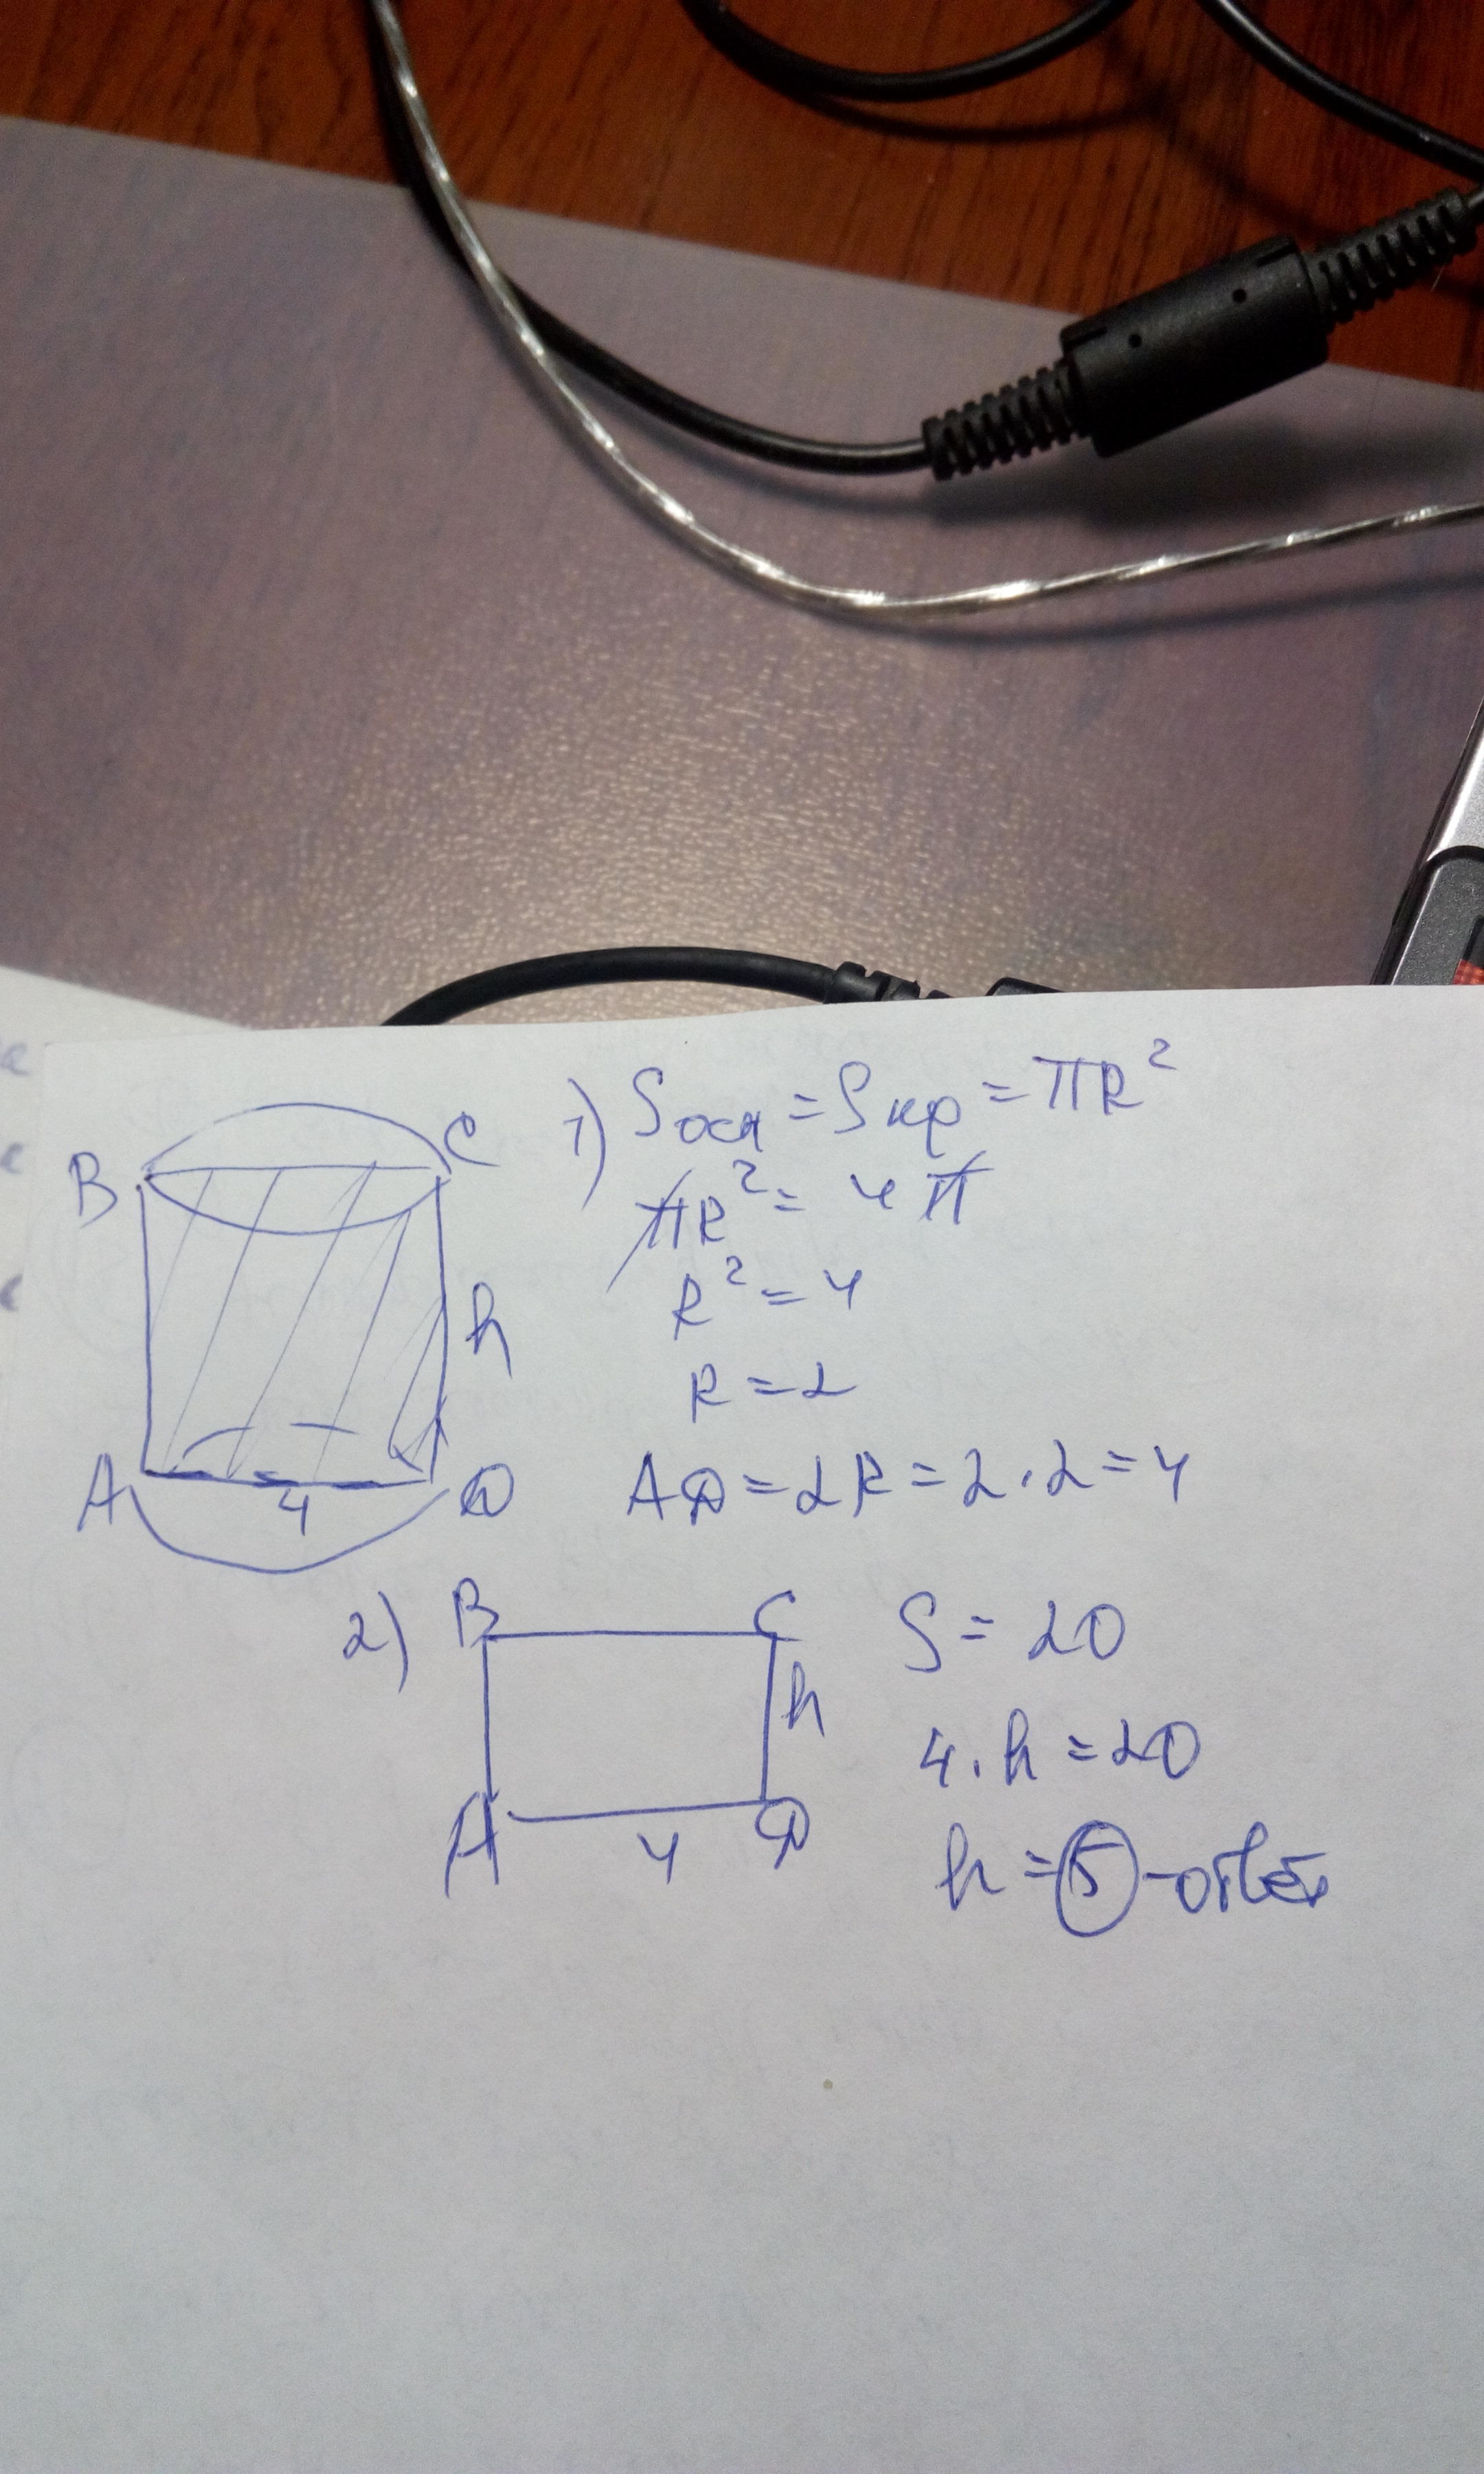 B C
h
A 4 D
1) Sосн = Sкр = πR²
πR² = 4π
R² = 4
R = 2
AD = 2R = 2 · 2 = 4
2) B C
h
A 4 D
S = 20
4 · h = 20
h = 5 - ответ